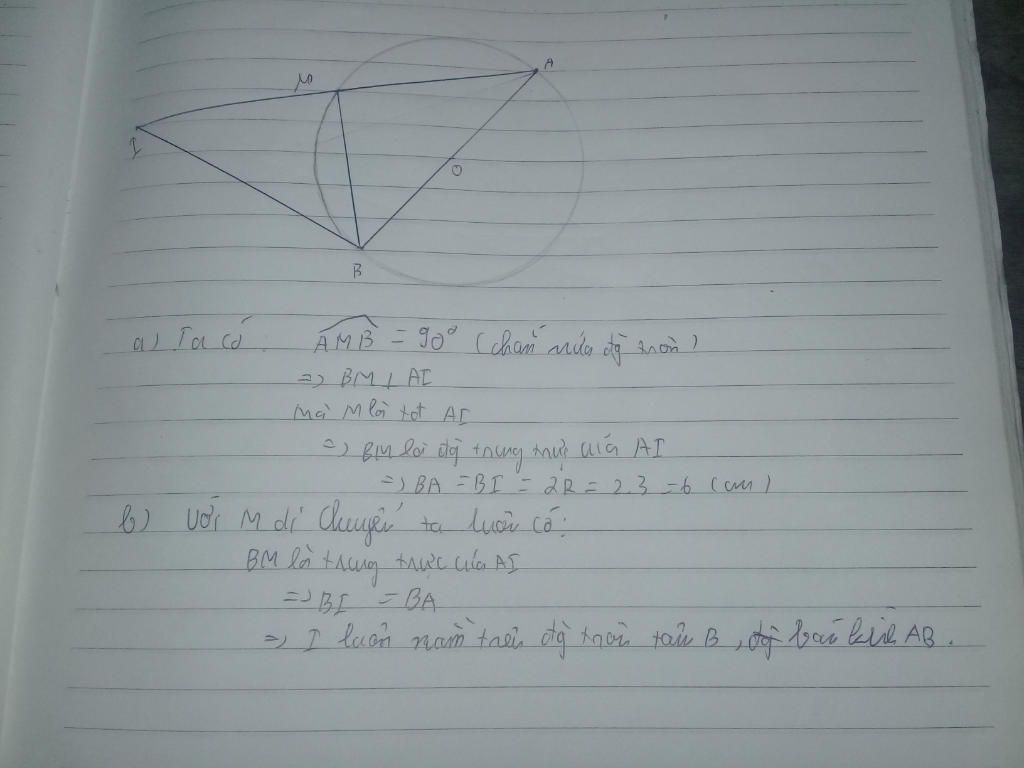 M
A
I
O
B
a) Ta có: AMB = 90° (chắn nửa đg tròn)
=> BM ⊥ AI
Mà M là tđ AI
=> BM là đg trung trực của AI
=> BA = BI = 2R = 2.3 = 6 (cm)
b) Với M di chuyển ta luôn có:
BM là trung trực của AI
=> BI = BA
=> I luôn nằm trên đg tròn tâm B, bán kính AB.